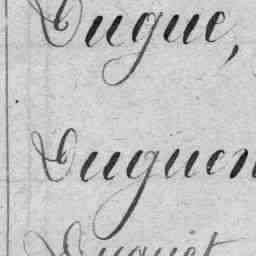 Dugue,
Duguen
Duquet